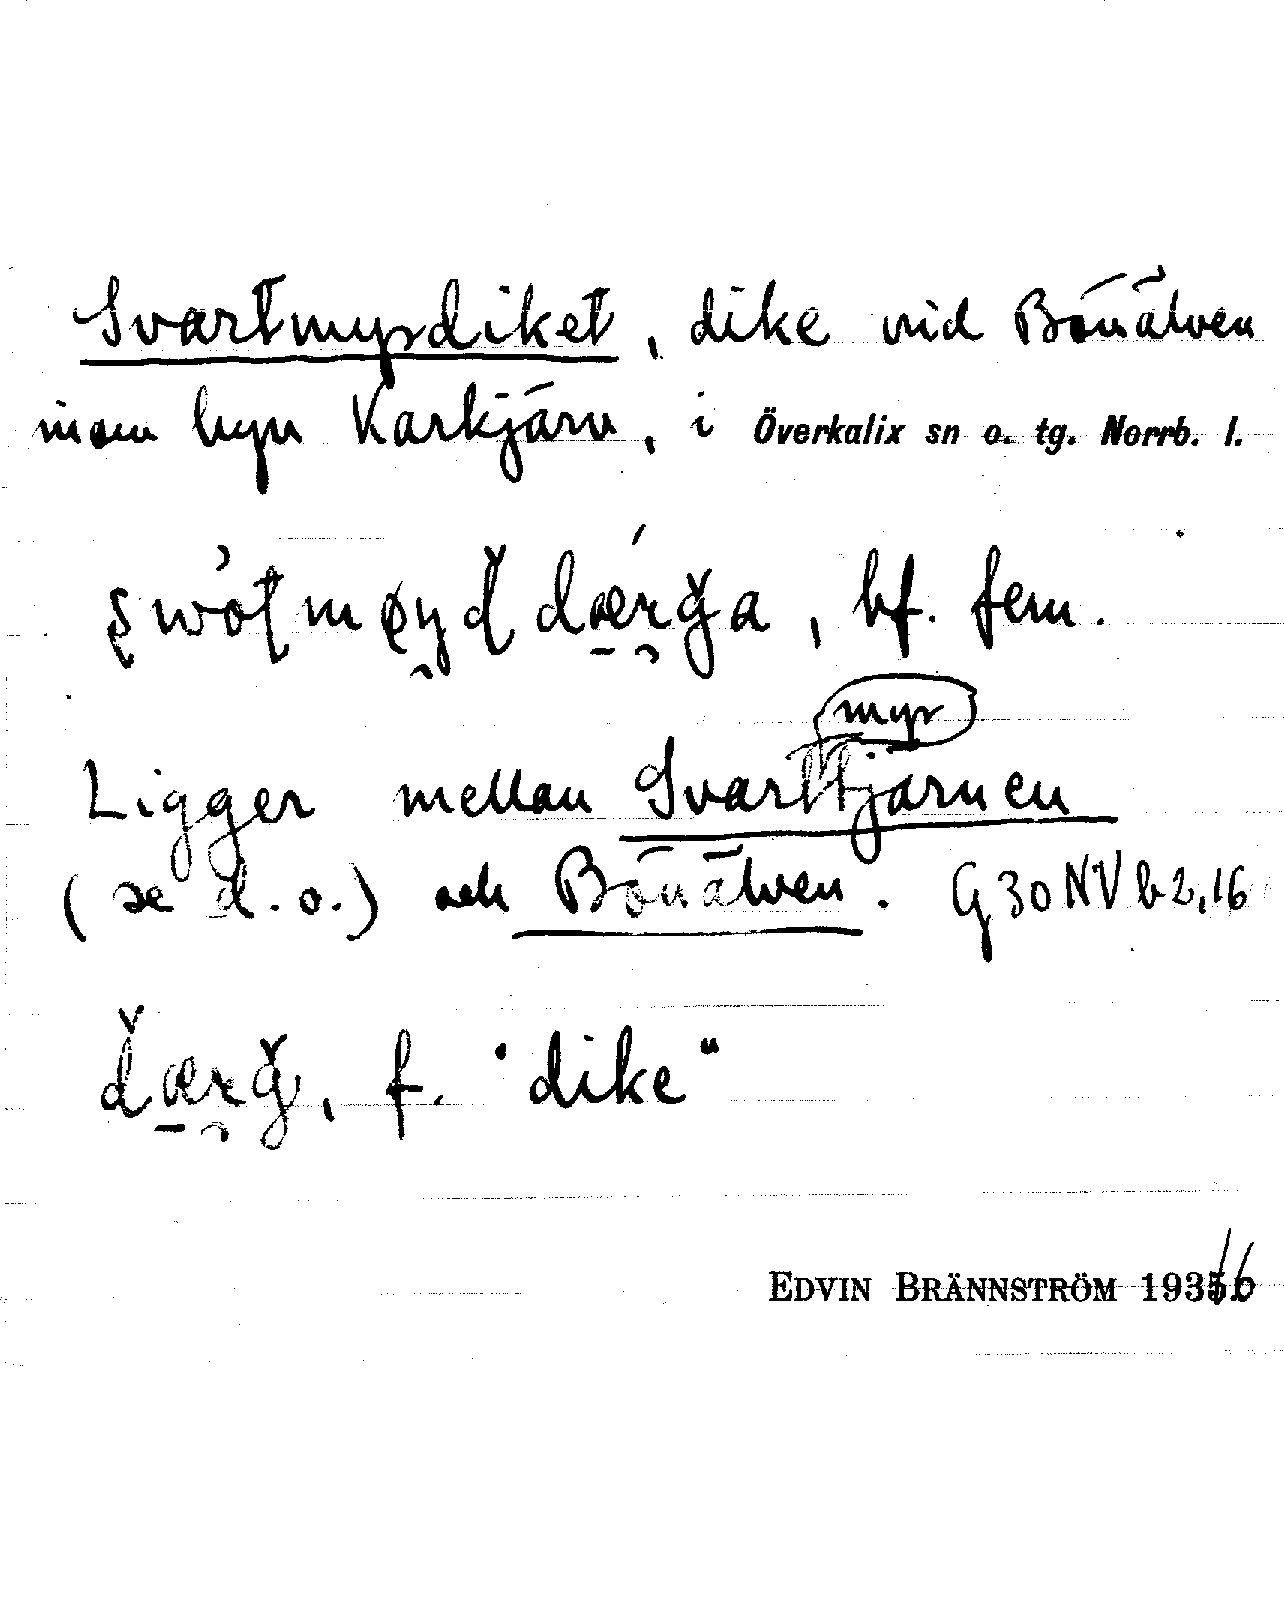 Svartmyrdiket, dike vid Bönälven
inom byn Karkjärv, i Överkalix sn o. tg. Norrb. l.
bf. fem.
myr
Ligger mellan Svarttjärnen
(se d. o.) och Bönälven. G30NVb2,16
f. "dike"
EDVIN BRÄNNSTRÖM 1936